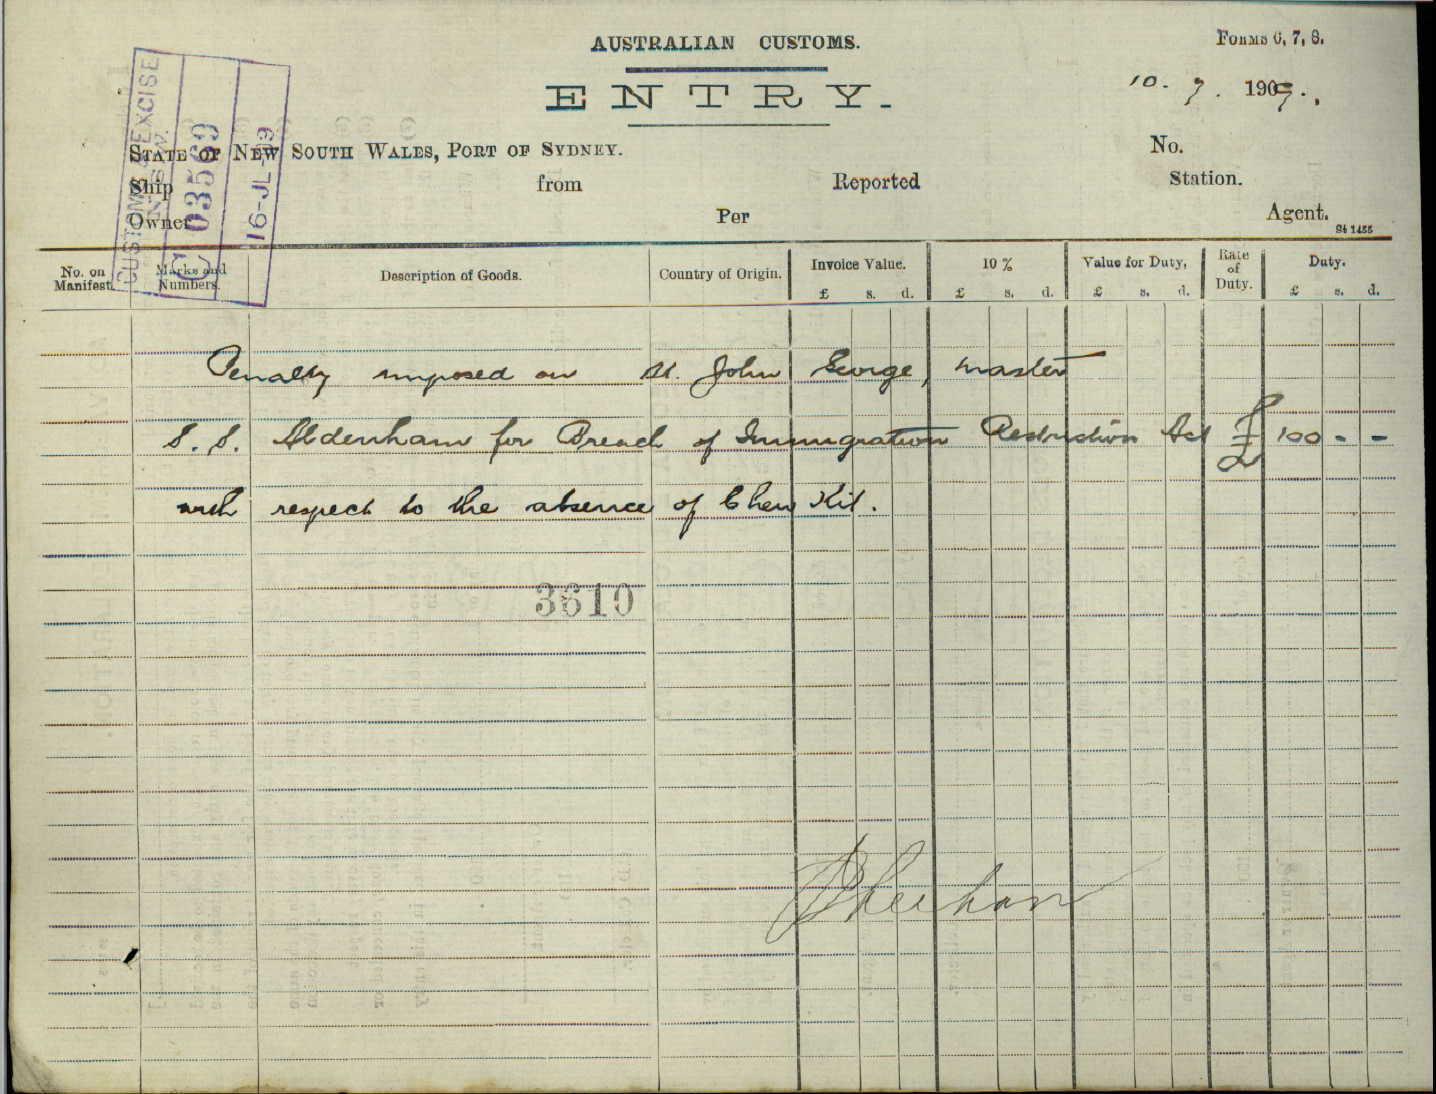 AUSTRALIAN CUSTOMS.
FORMS 6, 7, 8.
ENTRY.
10. 7. 1909.
CUSTOMS & EXCISE
N.S.W.
C 03569
16-JL-09
STATE OF NEW SOUTH WALES, PORT OF SYDNEY.
No.
Ship from Reported Station.
Owner Per Agent.
St 1455
No. on Manifest. Marks and Numbers. Description of Goods. Country of Origin. Invoice Value. 10 % Value for Duty. Rate of Duty. Duty.
£ s. d. £ s. d. £ s. d. £ s. d.
Penalty imposed on St. John George, master
S. S. Aldenham for Breach of Immigration Restriction Act £ 100 - -
with respect to the absence of Chew Kit.
3610